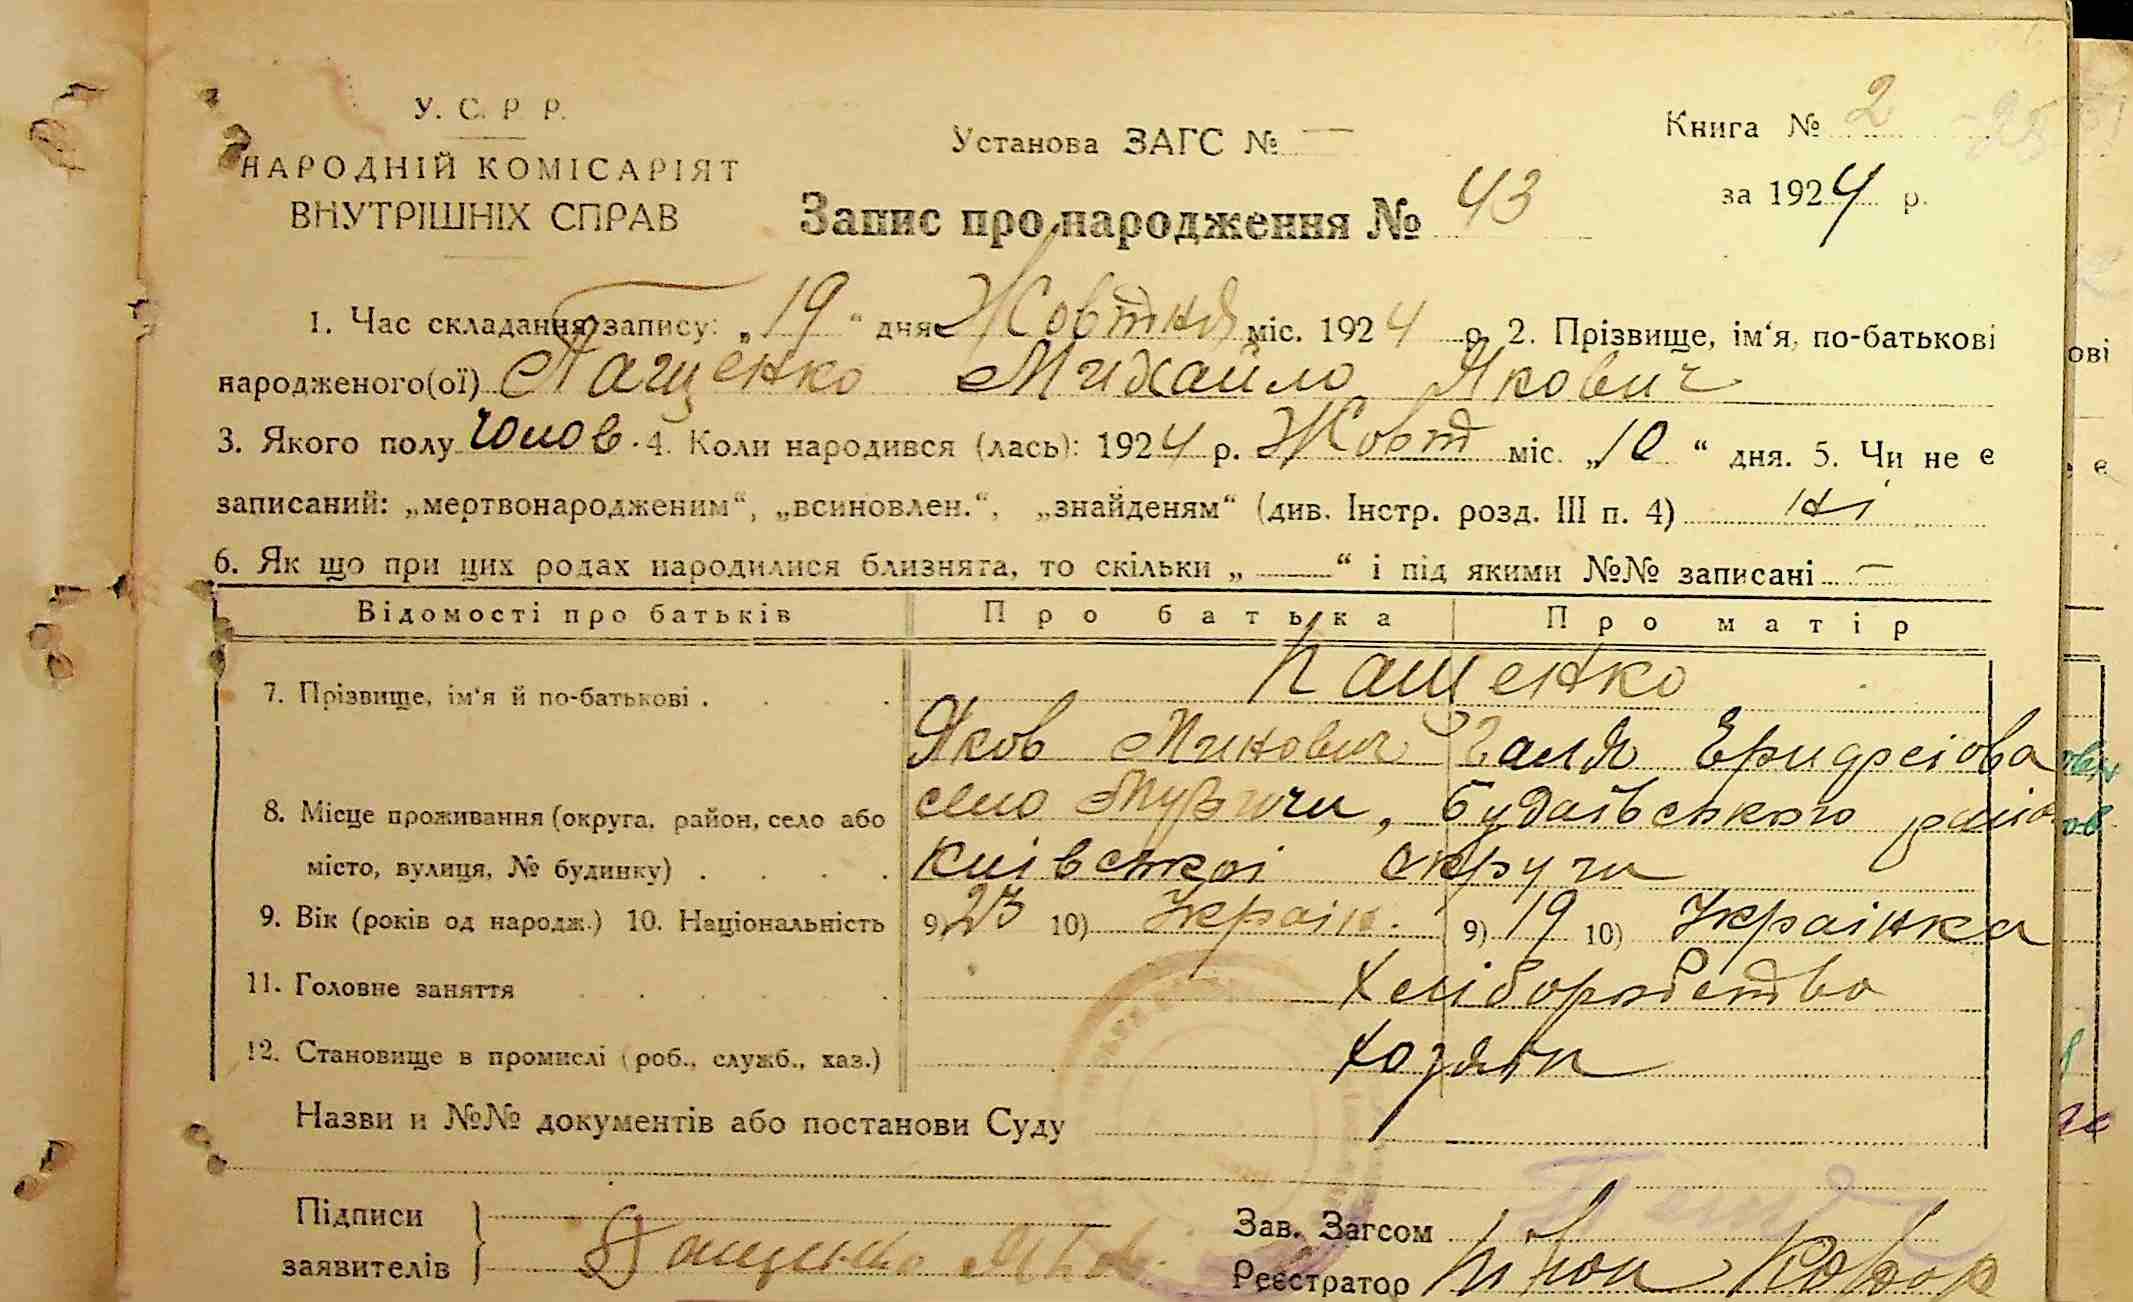 У. С. Р. Р.
НАРОДНІЙ КОМІСАРІЯТ
ВНУТРІШНІХ СПРАВ
Установа ЗАГС № —
Книга № 2
за 1924 р.
Запис про народження № 43
1. Час складання запису: „19“ дня Жовтня міс. 1924 р. 2. Прізвище, ім‘я, по-батькові
народженого(ої) Пащенко Михайло Якович
3. Якого полу чолов. 4. Коли народився (лась): 1924 р. Жовт міс. „10“ дня. 5. Чи не є
записаний: „мертвонародженим“, „всиновлен.“, „знайденям“ (див. Інстр. розд. III п. 4) ні
6. Як що при цих родах народилися близнята, то скільки „ — “ і під якими №№ записані —
Відомості про батьків Про батька Про матір
7. Прізвище, ім‘я й по-батькові . Пащенко
Яков Минович Галя
8. Місце проживання (округа, район, село або село Музичи, Будаївського
місто, вулиця, № будинку) . . . . Київської округи
9. Вік (років од народж.) 10. Національність 9) 23 10) Україн. 9) 19 10) Українка
11. Головне заняття Хліборобство
12. Становище в промислі (роб., служб., хаз.) Хозяїн
Назви и №№ документів або постанови Суду
Підписи
заявителів
Пащенко
Зав. Загсом
Реєстратор